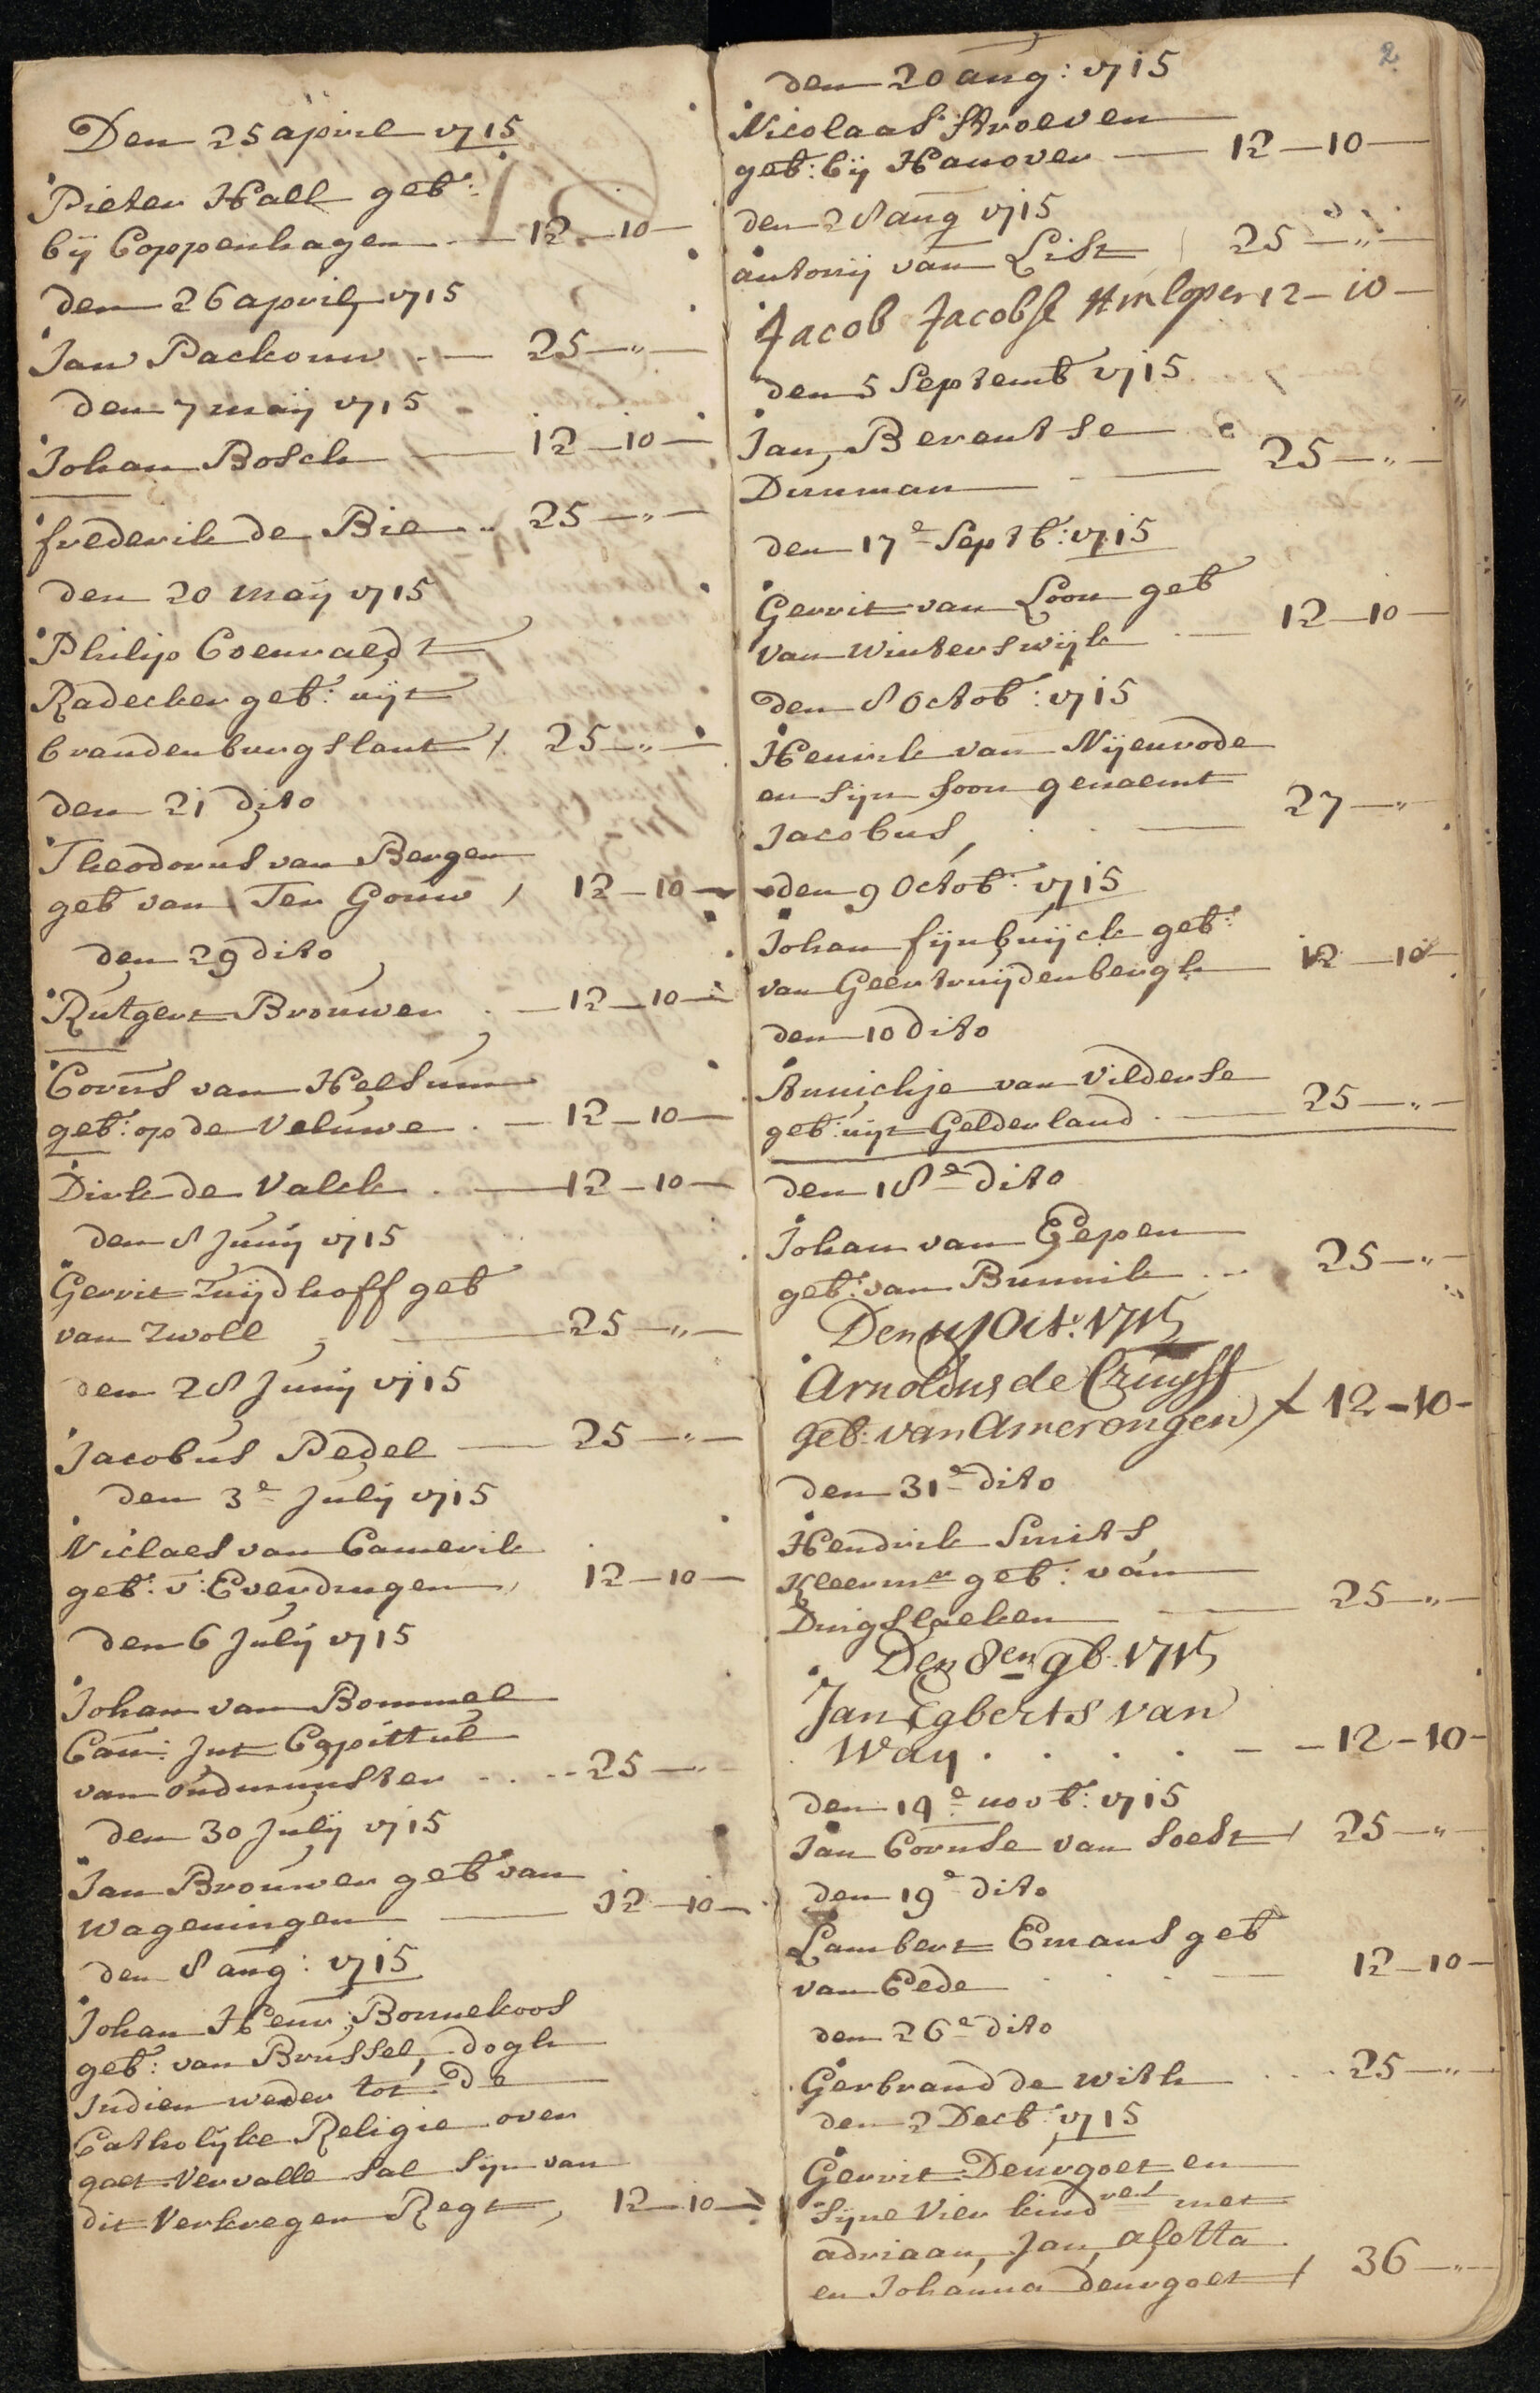 Den 25 april 1715
Pieter Hall geb:
bij Coppenhagen — 12—10—
den 26 april 1715
Jan Packouw — 25—"—
den 7 maij 1715
Johan Bosch — 12—10—
frederik de Bie 25—"—
den 20 maij 1715
Philip Coenraedt
Radecker geb: uijt
brandenburgslant / 25—"—
den 21 dito
Theodorus van Bergen
geb van Ter Gouw / 12—10—
den 29 dito
Rutgert Brouwer — 12—10—
Corn̄s van Helsum
geb: op de Veluwe — 12—10—
Dirk de Valck — 12—10—
den 8 Junij 1715
Gerrit Zuijdhoff geb
van Zwoll — 25—"—
den 28 Junij 1715
Jacobus Pedel — 25—"—
den 3e Julij 1715
Niclaes van Camerik
geb: v: Everdingen, 12—10—
den 6 Julij 1715
Johan van Bommel
Can: Int Capittul
van oudmunster - - 25—"—
den 30 Julij 1715
Jan Brouwer geb van
Wageningen — 12—10—
den 8 aug: 1715
Johan Henr: Bonnekoos
geb: van Brussel, dogh
Indien weder tot de
Catholijke Religie over
gaet Vervalle sal sijn van
dit Verkregen Regt, 12—10—
2
den 20 aug: 1715
Nicolaas Stroeven
geb: bij Hanover — 12—10—
den 28 aug 1715
antonij van List / 25—"—
Jacob Jacobse Hinloper 12—10—
den 5 Septemb 1715
Jan Berentse
Dunman — 25—"—
den 17e Septb: 1715
Gerrit van Loon geb
van Winterswijk — 12—10—
den 8 Octob: 1715
Henrik van Nijenrode
en sijn soon genaemt
Jacobus, — 27—"
den 9 Octob: 1715
Johan fijnbuijck geb:
van Geertruijdenbergh 12—10
den 10 dito
Annichje van Vilderse
geb: uijt Gelderland — 25—"—
den 18e dito
Johan van Eepen
geb: van Bunnik - - 25—"—
Den Oct: 1715
Arnoldus de Cruyff
geb: van Amerongen / 12—10—
den 31e dito
Hendrik Smits
Kleermr geb: van
Dingslaeken — 25—"—
Den 8en 9b. 1715
Jan Egberts van
Way . . . . — 12—10—
den 14e novb: 1715
Jan Cornse van Soest / 25—"—
den 19e dito
Lambert Emans geb
van Eede . . . — 12—10—
den 26e dito
Gerbrand de With . . . 25—"—
den 2 Decb: 1715
Gerrit Deurgoet en
Sijne Vier kindren met
adriaan, Jan, aletta
en Johanna deurgoet / 36—"—